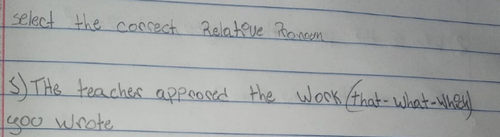 select the correct Relative Pronoun
5) THe teacher approved the work (that-what-when)
you wrote